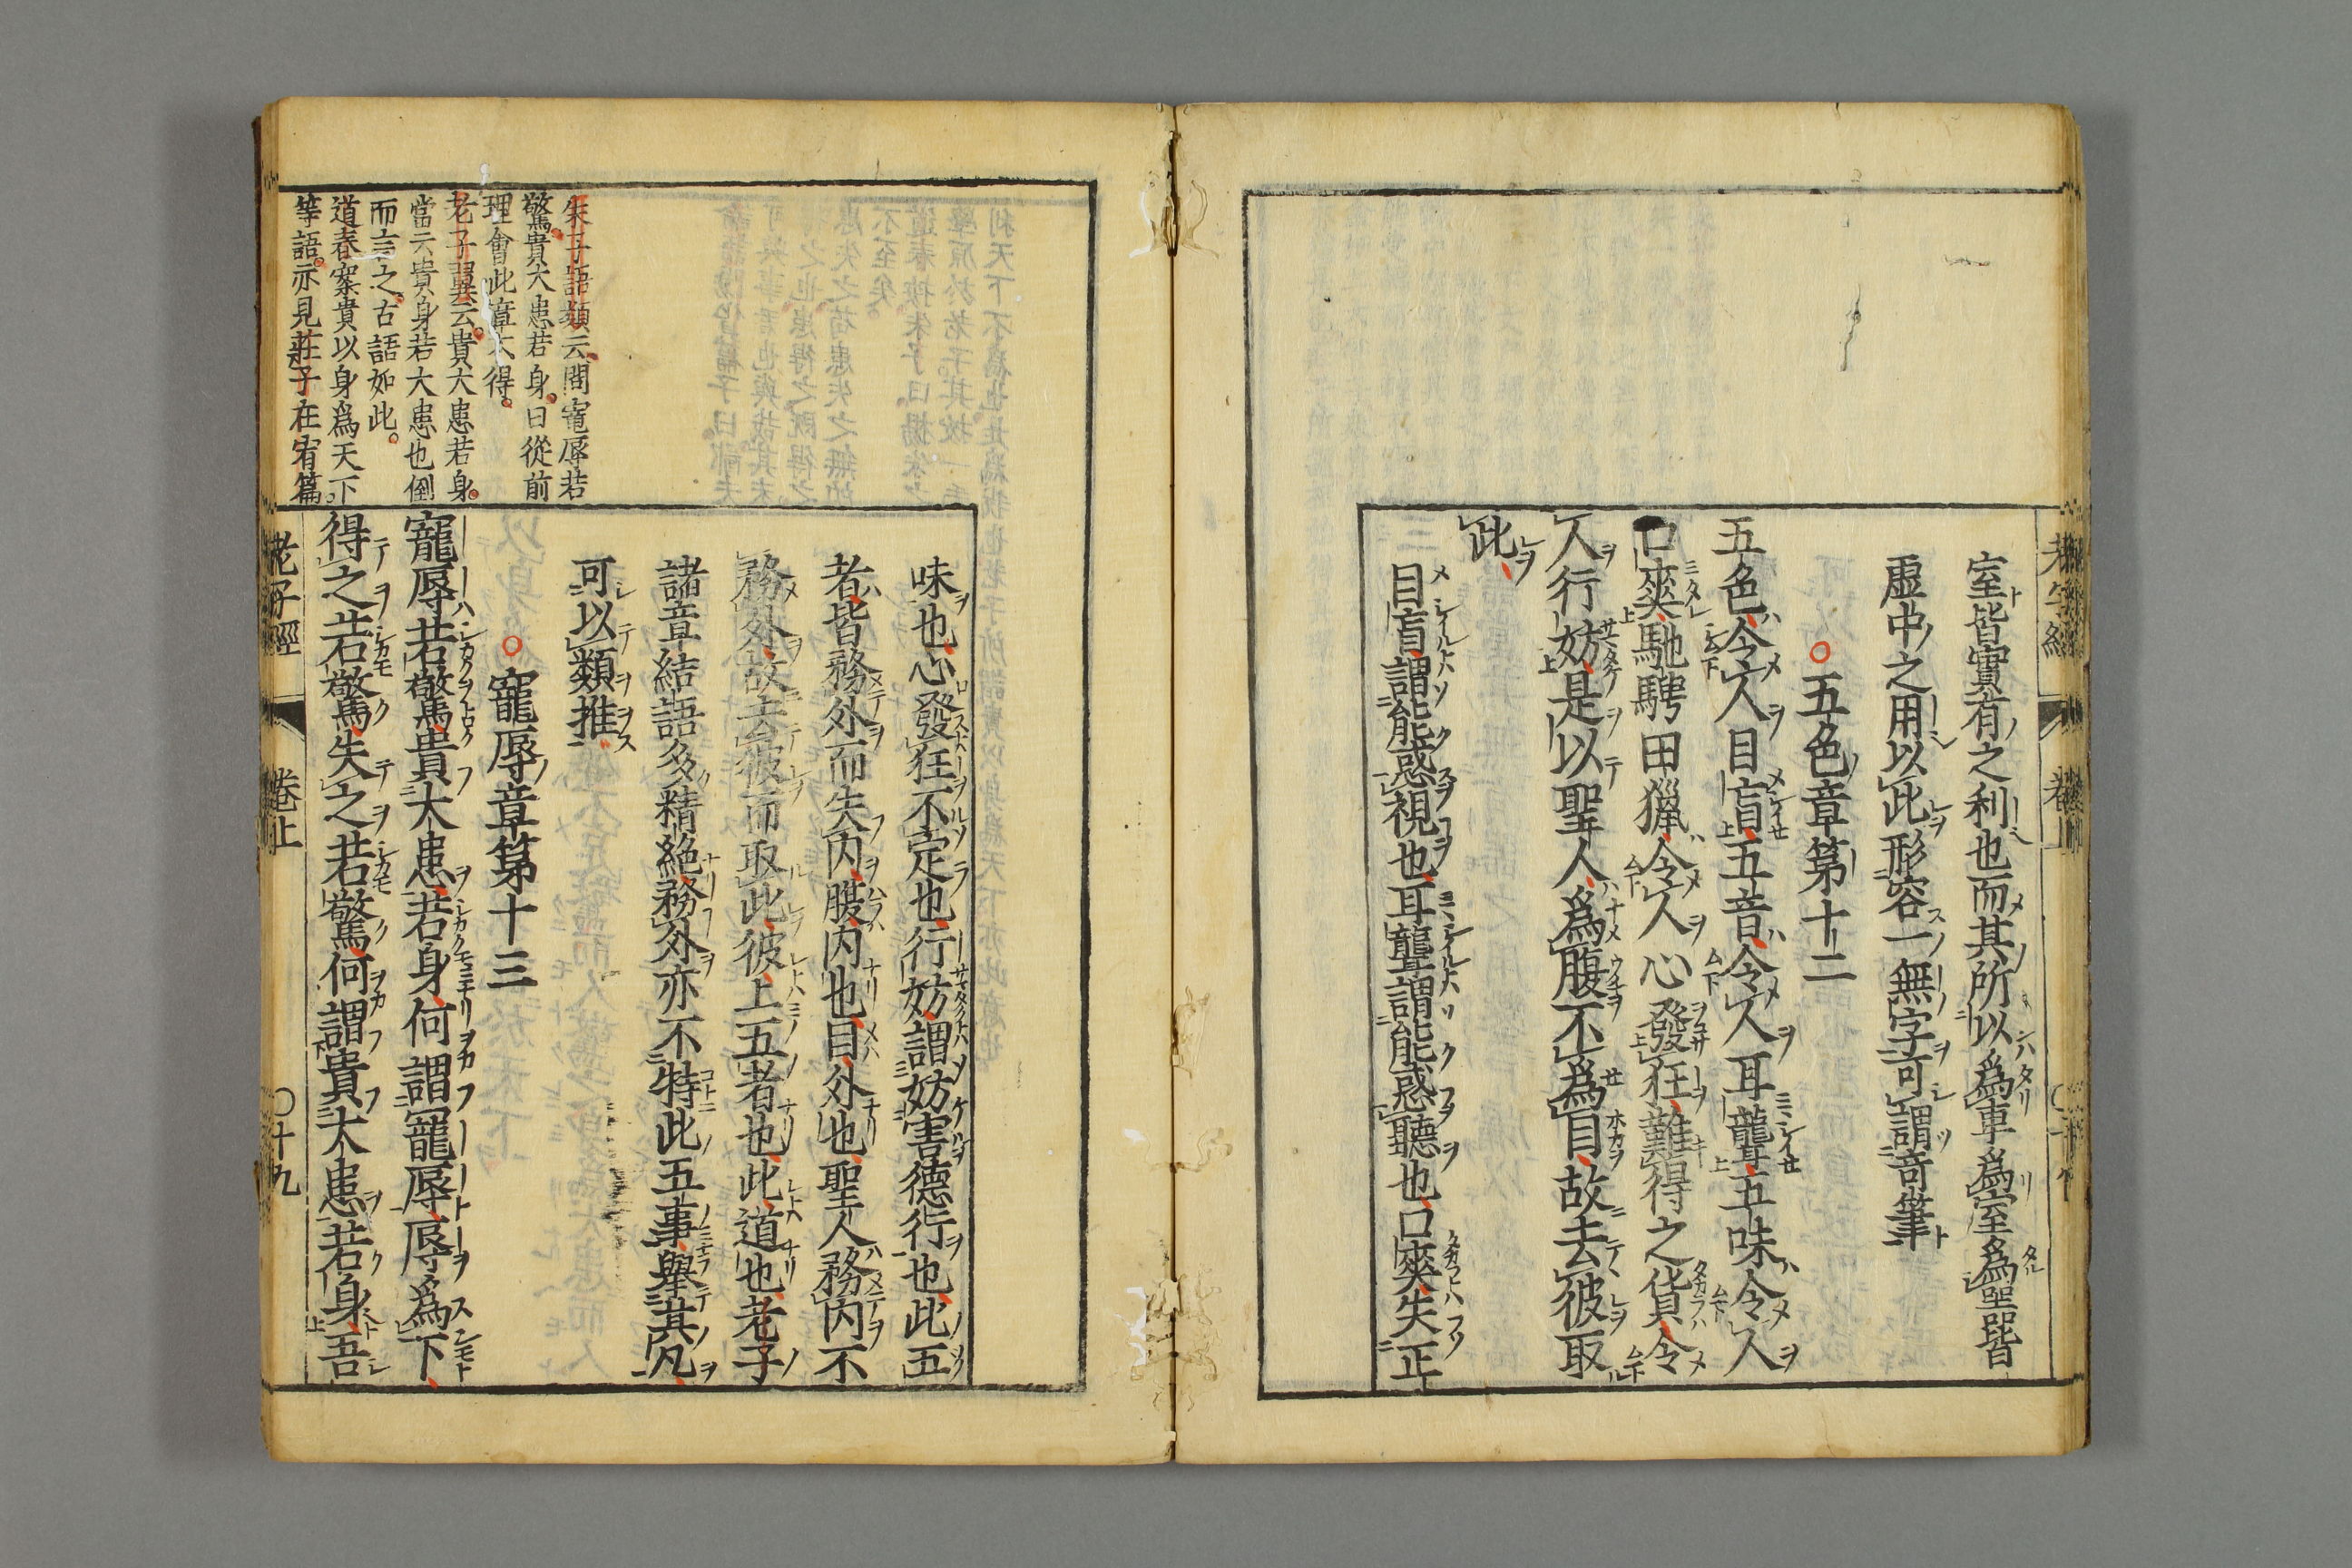 室皆實有之利也而其所以爲車爲室爲噐皆
虛中之用以此形容一無字可謂竒筆
五色章第十二
五色令人目盲五音令人耳聾五味令人
口爽馳騁田獵令人心發狂難得之貨令
人行妨是以聖人爲腹不爲目故去彼取
此
目盲謂能惑視也耳聾謂能惑聽也口爽失正
味也心發狂不定也行妨謂妨害德行也此五
者皆務外而失内腹内也目外也聖人務内不
務外故去彼而取此彼上五者也此道也老子
諸章結語多精絶務外亦不特此五事舉其凡
可以類推
寵辱章第十三
寵辱若驚貴大患若身何謂寵辱辱爲下
得之若驚失之若驚何謂貴大患若身吾
朱子語類云問寵辱若
驚貴大患若身曰從前
理會此章不得
老子翼云貴大患若身
當云貴身若大患也倒
而言之古語如此
道春案貴以身爲天下
等語亦見莊子在宥篇
老子經 卷上 〇十九